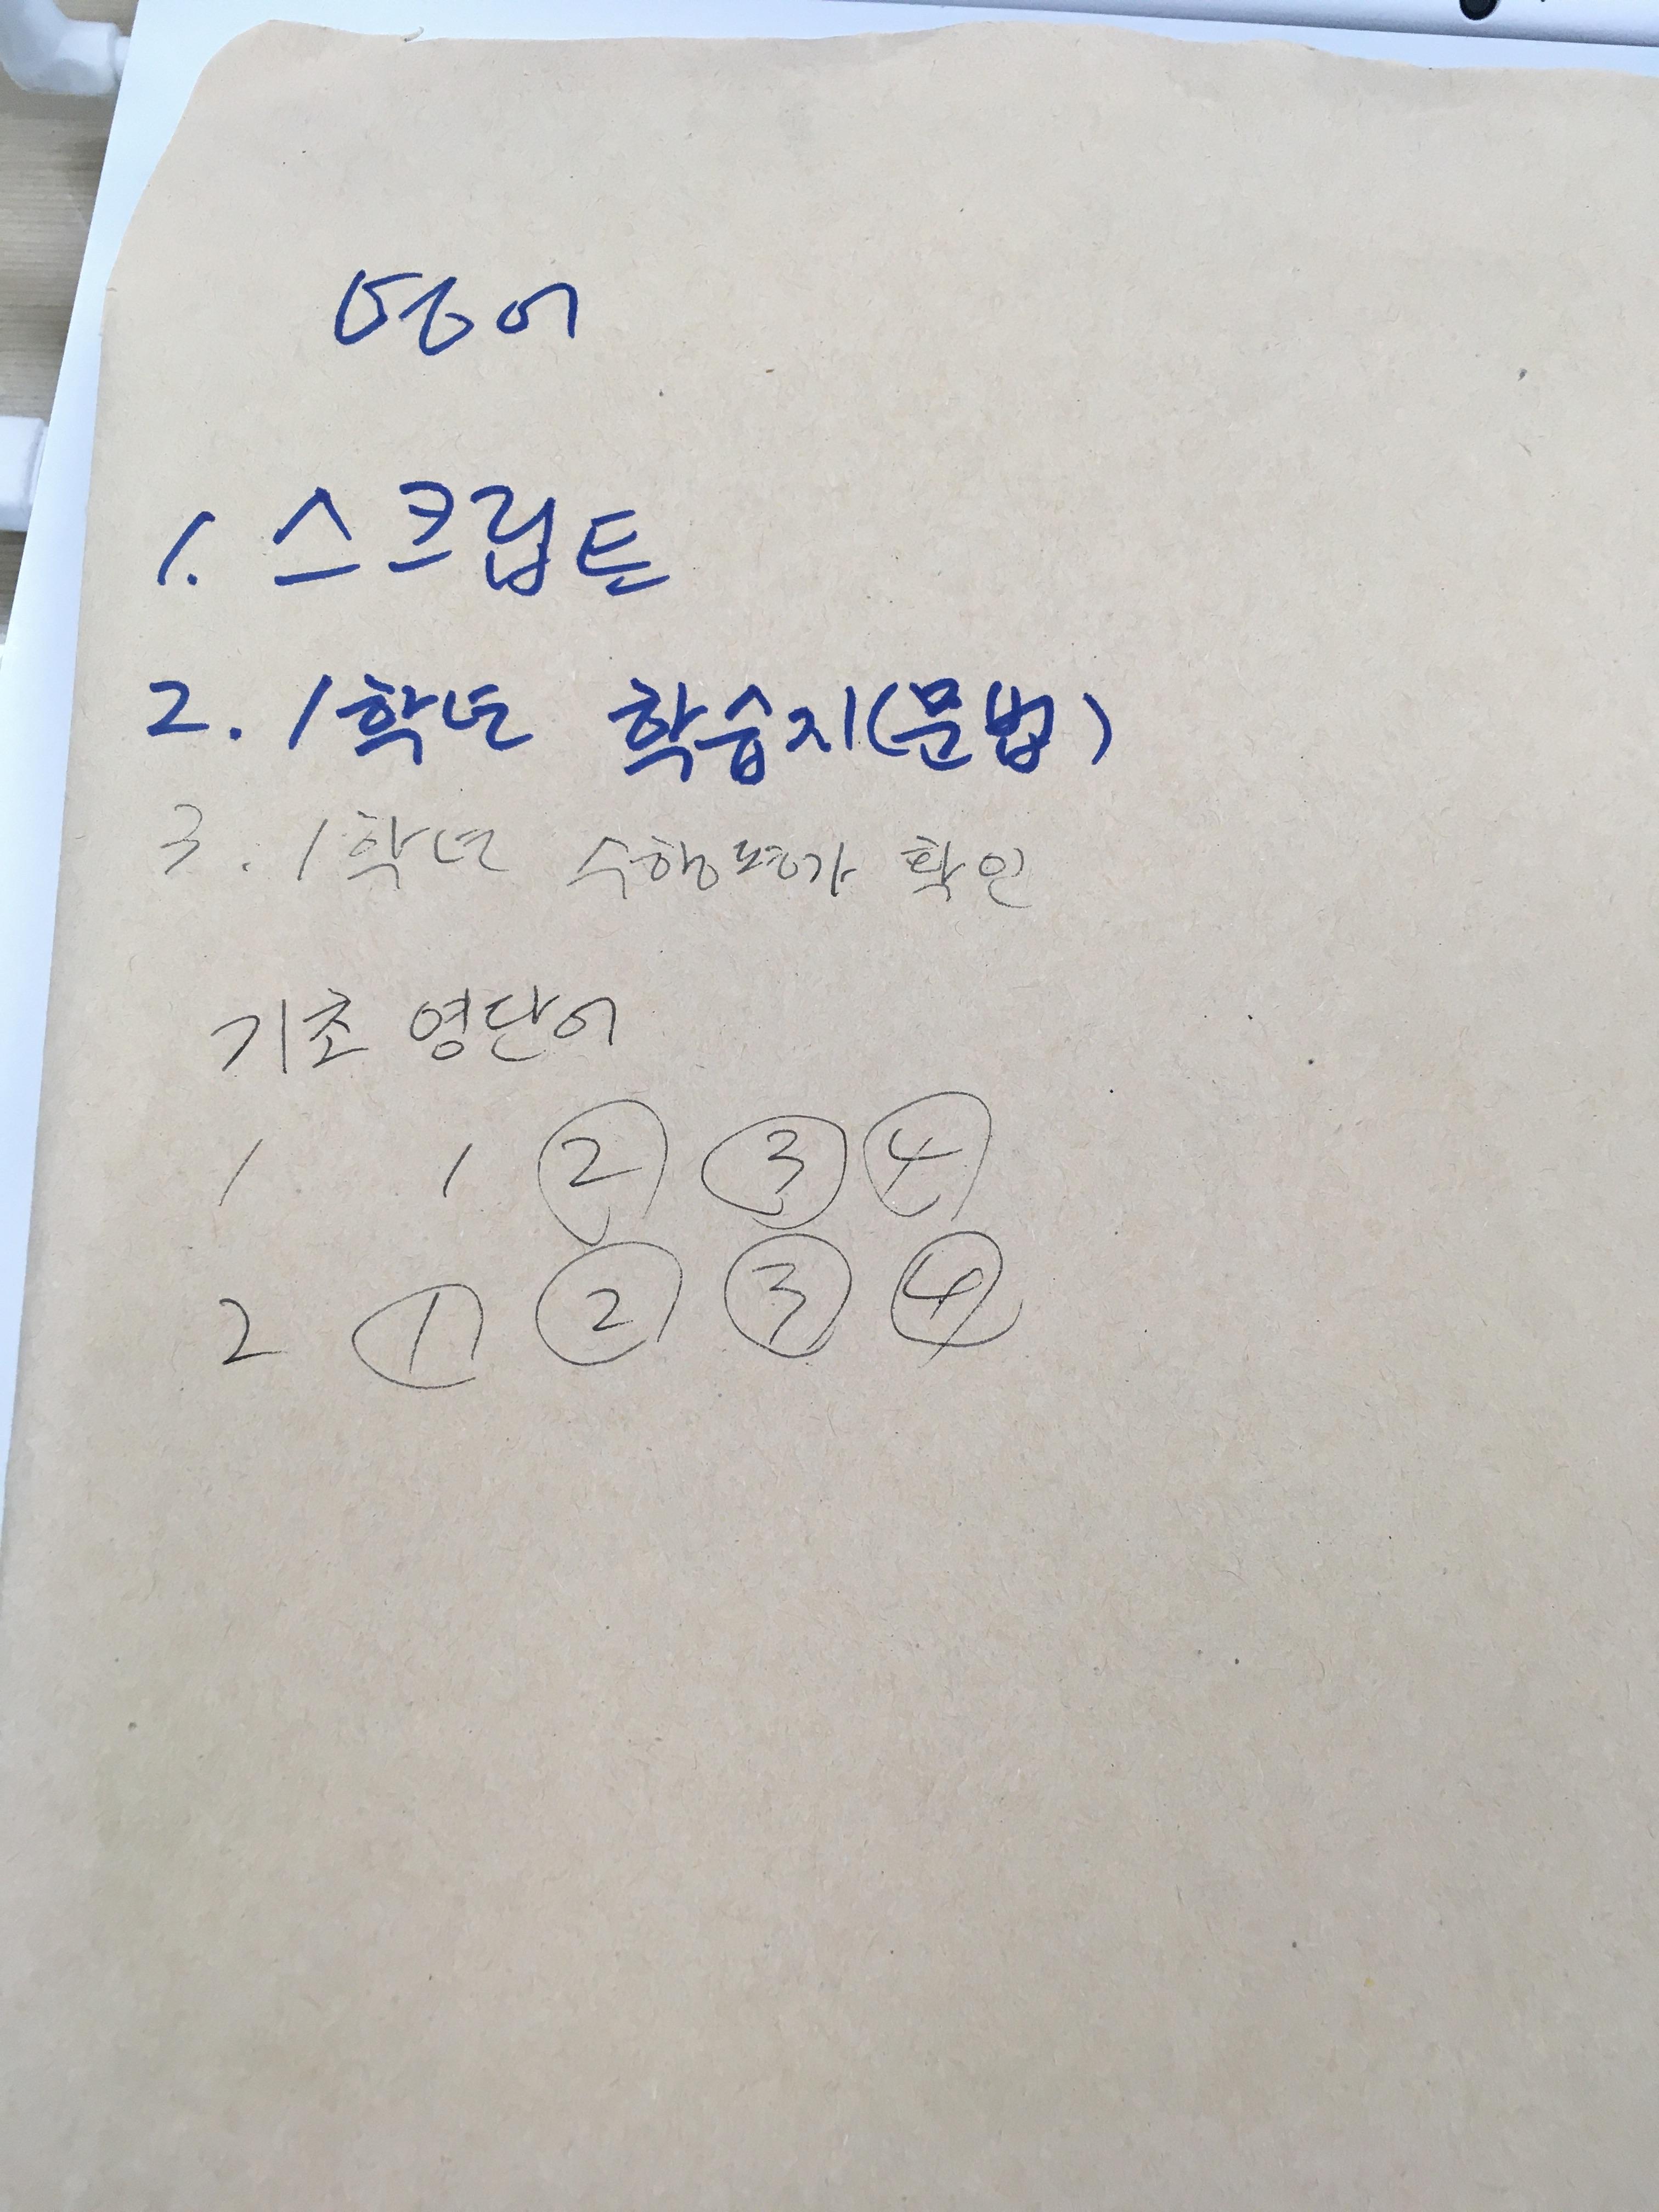 영어
1. 스크립트
2. 1학년 학습지(문법)
3. 1학년 수행평가 확인
기초 영단어
1 1 ② ③ ④
2 ① ② ③ ④